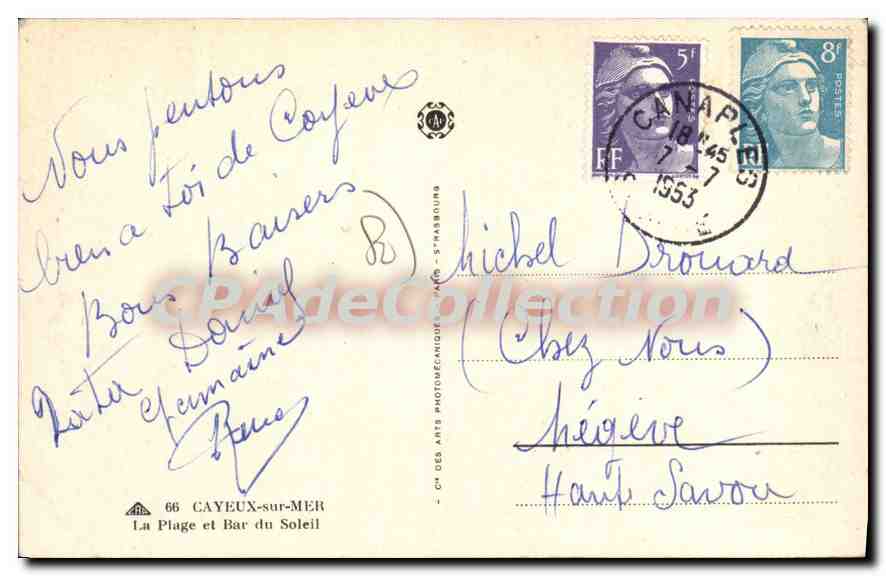 Nous pensons
bien a toi de Cayeux
Bons Baisers
Tata Daniel
Germaine
René
66 CAYEUX-sur-MER
La Plage et Bar du Soleil
CAP
- Cie DES ARTS PHOTOMÉCANIQUES - PARIS - STRASBOURG
5f
POSTES
RF
8f
POSTES
CANAPLES
18 H45
7 - 7
1953
Michel Drouard
(Chez Nous)
Mégève
Haute Savoie
CPAdeCollection